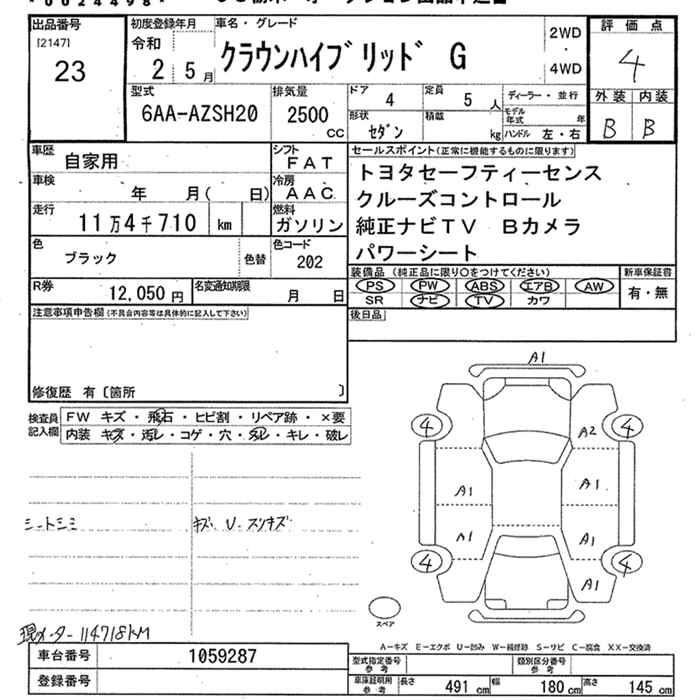 *0024498*
出品番号
[2147]
23
初度登録年月
令和
2 5月
車名・グレード
クラウンハイブリッド G
2WD
4WD
評価点
4
外装 内装
B B
型式
6AA-AZSH20
排気量
2500
CC
ドア
4
定員
5 人
形状
セダン
積載
kg
ディーラー・並行
モデル年式
年
ハンドル 左・右
車歴
自家用
シフト
FAT
車検
年 月( 日)
冷房
AAC
走行
11万4千710 km
燃料
ガソリン
色
ブラック
色替
色コード
202
R券
12,050円
名変通知期限
月 日
セールスポイント(正常に機能するものに限ります)
トヨタセーフティーセンス
クルーズコントロール
純正ナビTV Bカメラ
パワーシート
装備品 (純正品に限り○をつけてください)
新車保証書
PS PW ABS エアB AW
SR ナビ TV カワ
有・無
後日品
注意事項申告欄(不具合内容等は具体的に記入して下さい)
修復歴 有〔箇所 〕
検査員
記入欄
FW キズ・飛石・ヒビ割・リペア跡・×要
内装 キズ・汚レ・コゲ・穴・スレ・キレ・破レ
シートシミ
キズ、U、スリキズ
現メーター 114718KM
A1
4
4
A2
A1
A1
A1
A1
4
4
A1
スペア
A-キズ E-エクボ U-凹み W-補修跡 S-サビ C-腐食 XX-交換済
車台番号
1059287
登録番号
型式指定番号
参考
類別区分番号
参考
車庫証明用
参考
長さ 491 cm 幅 180 cm 高さ 145 cm